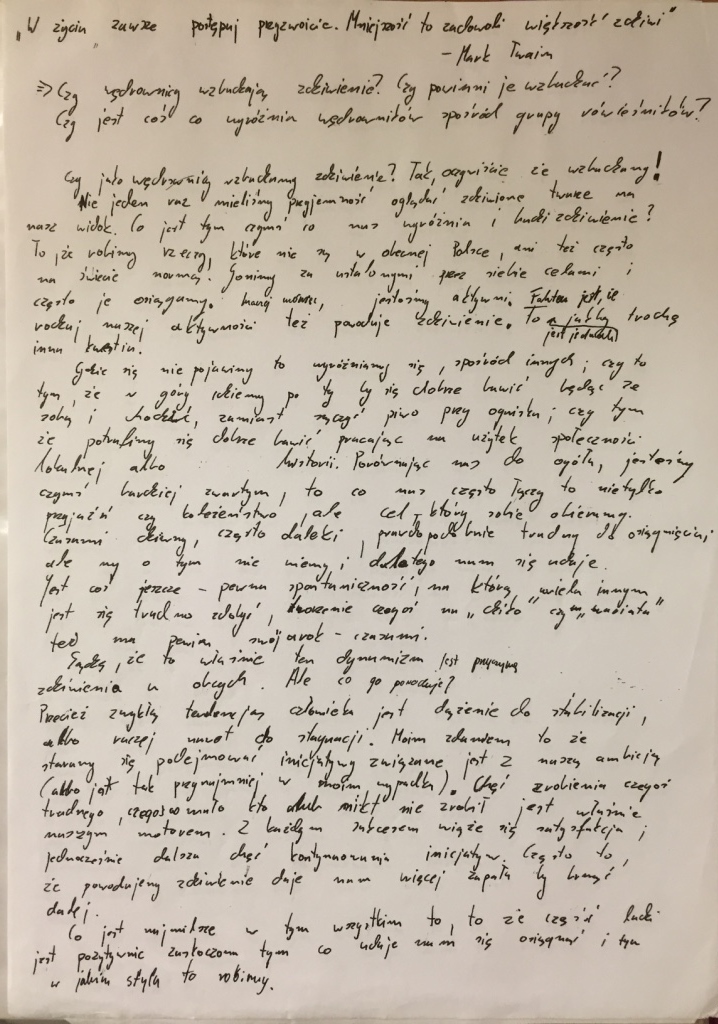 „W życiu zawsze postępuj przyzwoicie. Mniejszość to zadowoli większość zdziwi"
- Mark Twain
⇒ Czy wędrownicy wzbudzają zdziwienie? Czy powinni je wzbudzać?
Czy jest coś co wyróżnia wędrowników spośród grupy rówieśników?
Czy jako wędrownicy wzbudzamy zdziwienie? Tak, oczywiście że wzbudzamy!
Nie jeden raz mieliśmy przyjemność oglądać zdziwione twarze na
nasz widok. Co jest tym czymś co nas wyróżnia i budzi zdziwienie?
To, że robimy rzeczy, które nie są w obecnej Polsce, ani też często
na świecie normą. Gonimy za ustalonymi przez siebie celami i
często je osiągamy. Inaczej mówiąc, jesteśmy aktywni. Faktem jest, że
rodzaj naszej aktywności też powoduje zdziwienie. To jest jednak trochę
inna kwestia.
Gdzie się nie pojawimy to wyróżniamy się, spośród innych; czy to
tym, że w góry idziemy po to by się dobrze bawić będąc ze
sobą i chodzić, zamiast sączyć piwo przy ognisku; czy tym
że potrafimy się dobrze bawić pracując na użytek społeczności
lokalnej albo historii. Porównując nas do ogółu, jesteśmy
czymś bardziej zwartym, to co nas często łączy to nietylko
przyjaźń czy koleżeństwo, ale cel, który sobie obieramy.
Czasami dziwny, często daleki, prawdopodobnie trudny do osiągnięcia,
ale my o tym nie wiemy i dlatego nam się udaje.
Jest coś jeszcze - pewna spontaniczność, na którą wielu innym
jest się trudno zdobyć, tworzenie czegoś na „dziko" czy „wariata"
też ma pewien swój urok - czasami.
Sądzę, że to właśnie ten dynamizm jest przyczyną
zdziwienia u obcych. Ale co go powoduje?
Przecież zwykłą tendencją człowieka jest dążenie do stabilizacji,
albo raczej nawet do stagnacji. Moim zdaniem to że
staramy się podejmować inicjatywy związane jest z naszą ambicją
(albo jest tak przynajmniej w moim wypadku). Chęć zrobienia czegoś
trudnego, czegoś co mało kto albo nikt nie zrobił jest właśnie
naszym motorem. Z każdym sukcesem wiąże się satysfakcja i
jednocześnie dalsza chęć kontynuowania inicjatyw. Często to,
że powodujemy zdziwienie daje nam więcej zapału by brnąć
dalej.
Co jest najmilsze w tym wszystkim to, to że część ludzi
jest pozytywnie zaskoczona tym co udaje nam się osiągnąć i tym
w jakim stylu to robimy.